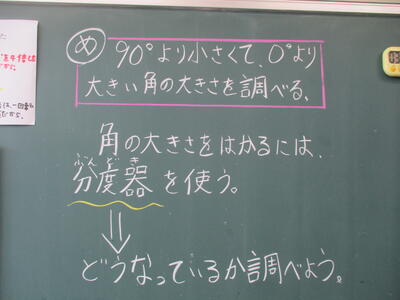 め 90°より小さくて、0°より
大きい角の大きさを調べる。
角の大きさをはかるには、
ぶんどき
分度器を使う。
⇓
どうなっているか調べよう。